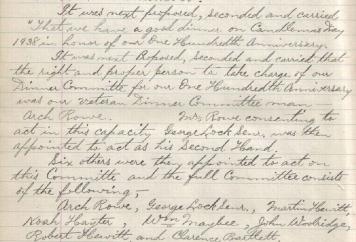 It was next proposed, seconded and carried
"That we have a good dinner on Candlemas Day
1938 in honor of our One Hundredth Anniversary.
It was next Proposed, seconded and carried that
the right and proper person to take charge of our
Dinner Committee for our One Hundredth Anniversary
was our veteran Dinner Committee man
Arch Rowe. Mr. Rowe consenting to
act in this capacity George Lock Senr. was then
appointed to act as his Second Hand.
Six others were then appointed to act on
this Committe and the full Committee consists
of the following,-
Arch Rowe, George Lock Senr., Martin Hewitt,
Noah Hunter, Wm Maybee, John Woolridge,
Robert Hewitt, and Clarence Bartlett,